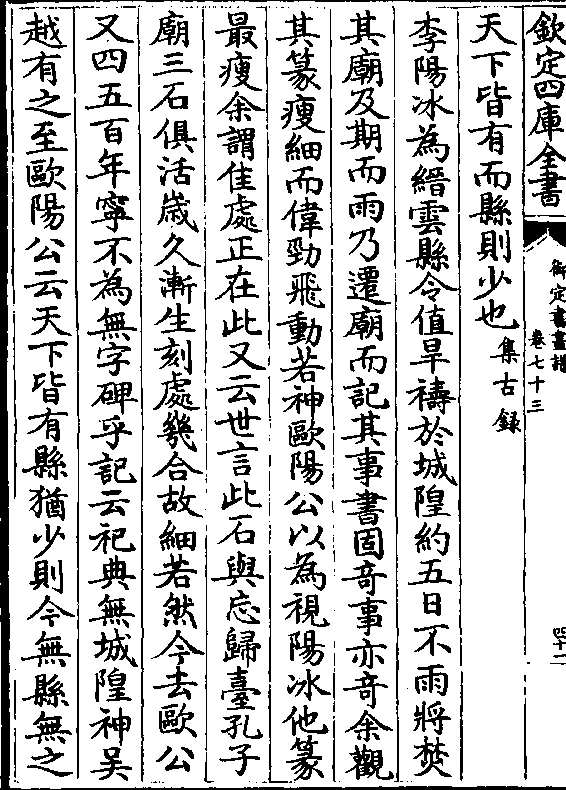 欽定四庫全書
御定書畫譜
卷七十三
四十一
天下皆有而縣則少也集古録
李陽冰為縉雲縣令值旱禱於城隍約五日不雨將焚
其廟及期而雨乃遷廟而記其事書固奇事亦奇余觀
其篆瘦細而偉勁飛動若神歐陽公以為視陽冰他篆
最瘦余謂佳處正在此又云世言此石與忘歸臺孔子
廟三石俱活嵗久漸生刻處幾合故細若然今去歐公
又四五百年寧不為無字碑乎記云祀典無城隍神吴
越有之至歐陽公云天下皆有縣猶少則今無縣無之